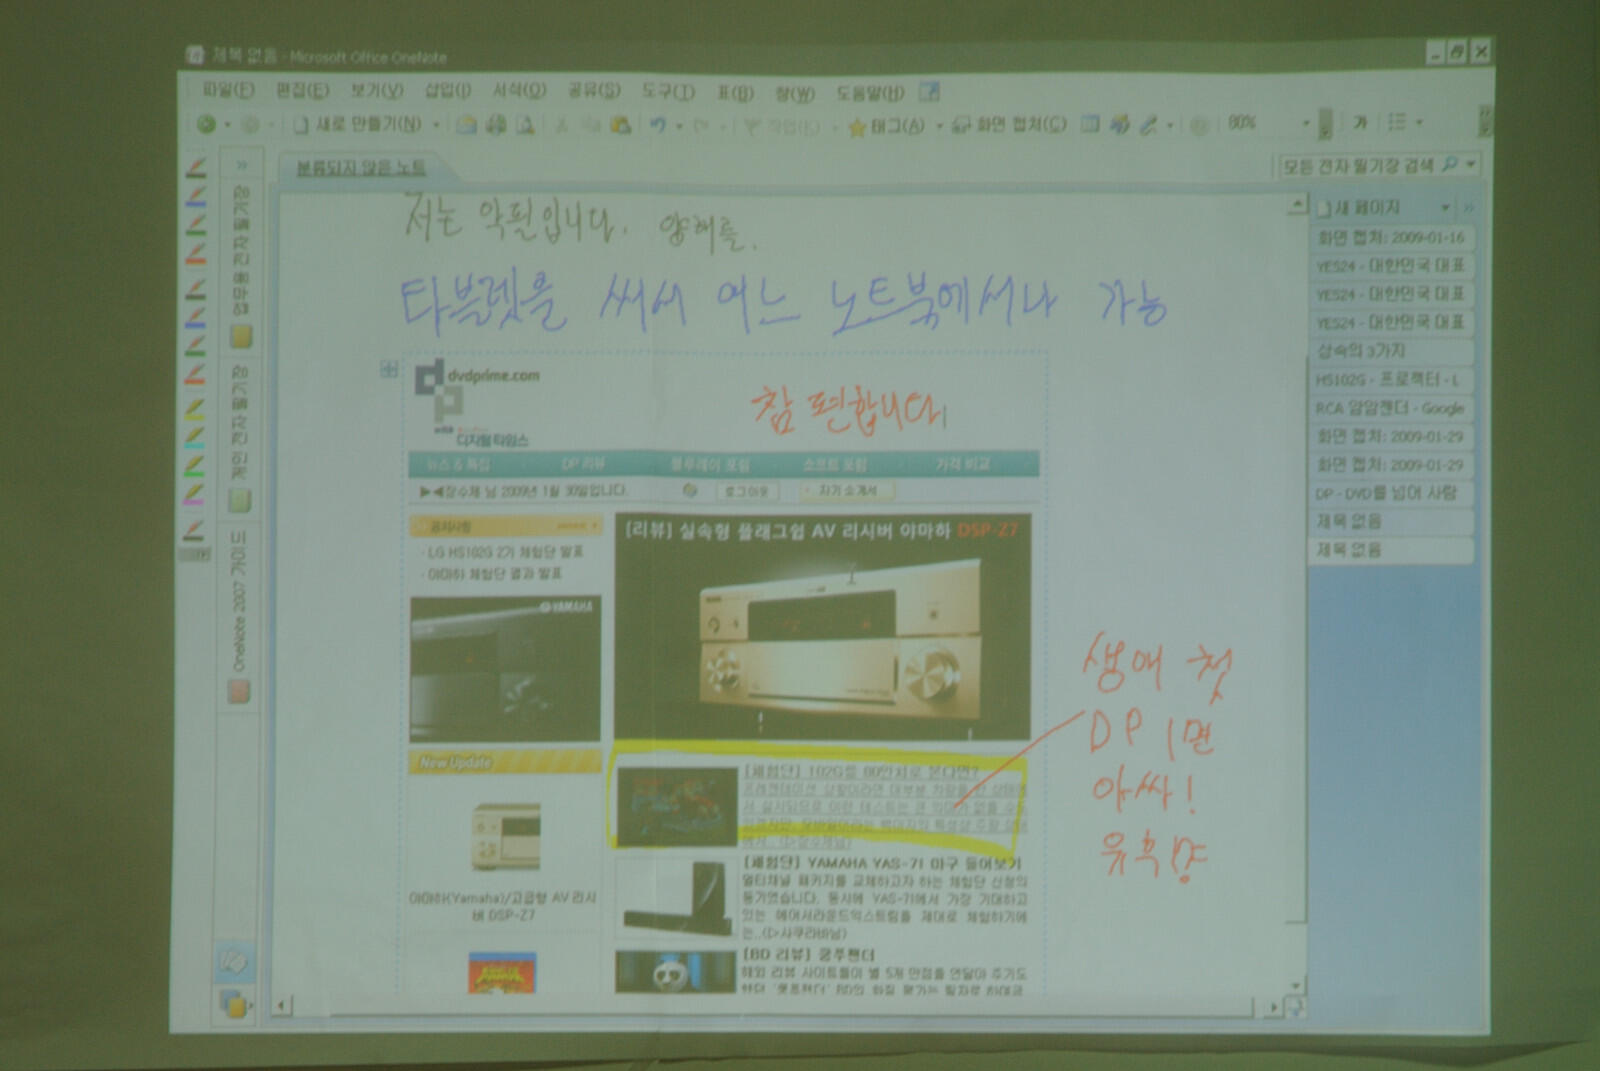 제목 없음 - Microsoft Office OneNote
파일(F) 편집(E) 보기(V) 삽입(I) 서식(O) 공유(S) 도구(T) 표(B) 창(W) 도움말(H)
새로 만들기(N) 작업(K) 태그(A) 화면 캡처(C) 80% 가
분류되지 않은 노트
모든 전자 필기장 검색
업무용 전자 필기장
개인 전자 필기장
OneNote 2007 가이드
저는 악필입니다. 양해를.
타블렛을 써서 어느 노트북에서나 가능
dvdprime.com
with
디지털 타임스
참 편합니다
뉴스 & 특집 DP 리뷰 블루레이 포럼 소프트 포럼 가격 비교
▶◀장수제 님 2009년 1월 30일입니다. 로그아웃 자기소개서
공지사항
· LG HS102G 2기 체험단 발표
· 야마하 체험단 결과 발표
YAMAHA
[리뷰] 실속형 플래그쉽 AV 리시버 야마하 DSP-Z7
New Update
야마하(Yamaha)/고급형 AV 리시
버 DSP-Z7
[체험단] 102G를 80인치로 본다면?
프레젠테이션 상황이라면 대부분 차광을 안 상태에
서 실시되므로 이런 테스트는 큰 의미가 없을 수도
에서..(▷장수제님)
[체험단] YAMAHA YAS-71 마구 들어보기
멀티채널 패키지를 교체하고자 하는 체험단 신청의
동기였습니다. 동시에 YAS-71에서 가장 기대하고
있는 에어서라운드익스트림을 제대로 체험하기에
는..(▷사쿠라바님)
[BD 리뷰] 쿵푸팬더
해외 리뷰 사이트들이 별 5개 만점을 연달아 주기도
했던 '쿵푸팬더' BD의 화질 평가는 필자로 하여금
생애 첫
DP 1면
아싸!
유후~
새 페이지
화면 캡처: 2009-01-16
YES24 - 대한민국 대표
YES24 - 대한민국 대표
YES24 - 대한민국 대표
상속의 3가지
HS102G - 프로젝터 - L
RCA 암암젠더 - Google
화면 캡처: 2009-01-29
화면 캡처: 2009-01-29
DP - DVD를 넘어 사람
제목 없음
제목 없음